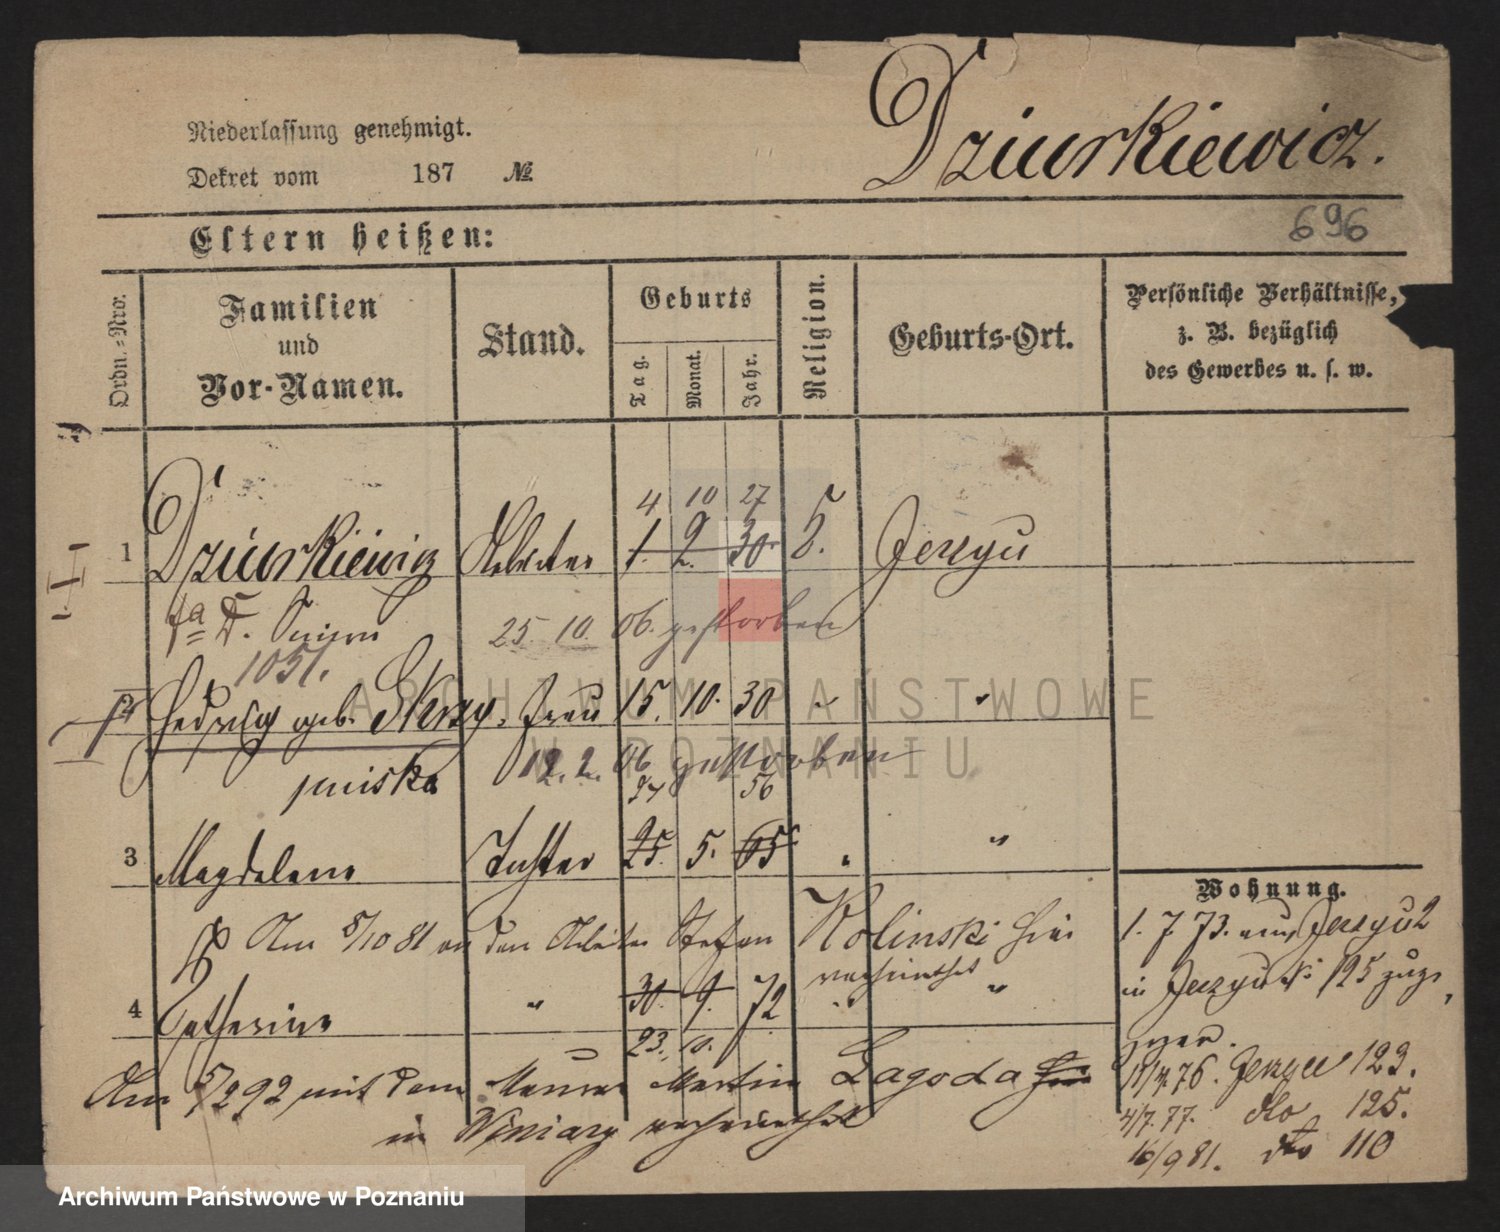 Dziurkiewicz.
Niederlassung genehmigt.
Dekret vom 187 №
696
Eltern heißen:
Ordn.-Nro.
Familien und Vor-Namen.
Stand.
Geburts
Tag. Monat. Jahr.
Religion.
Geburts-Ort.
Persönliche Verhältnisse,
z. B. bezüglich
des Gewerbes u. s. w.
4 10 27
1 Dziurkiewicz Arbeiter 1. 2. 30. Jerzyu
25. 10. 06. gestorben
1051.
2 Hedwig geb. Frau 15. 10. 30 " "
12. 2. 06 gestorben
27 56
3 Magdalena Tochter 25. 5. 65 " "
Wohnung.
Am 5/10 81 an den Arbeiter Stefan Kolinski hier
verheirathet
1. 7. 73. aus Jerzyu 2
in Jerzyu № 125 zuge
zogen.
4 Catharina " 30. 9. 72 " "
23. 10.
Am 5/2 92 mit dem Maurer Martin Lagoda hier
in Winiary verheirathet
11/4. 76. Jerzyu 123.
4/7. 77. dto 125.
16/9 81. dto 110
ARCHIWUM PAŃSTWOWE
W POZNANIU
Archiwum Państwowe w Poznaniu